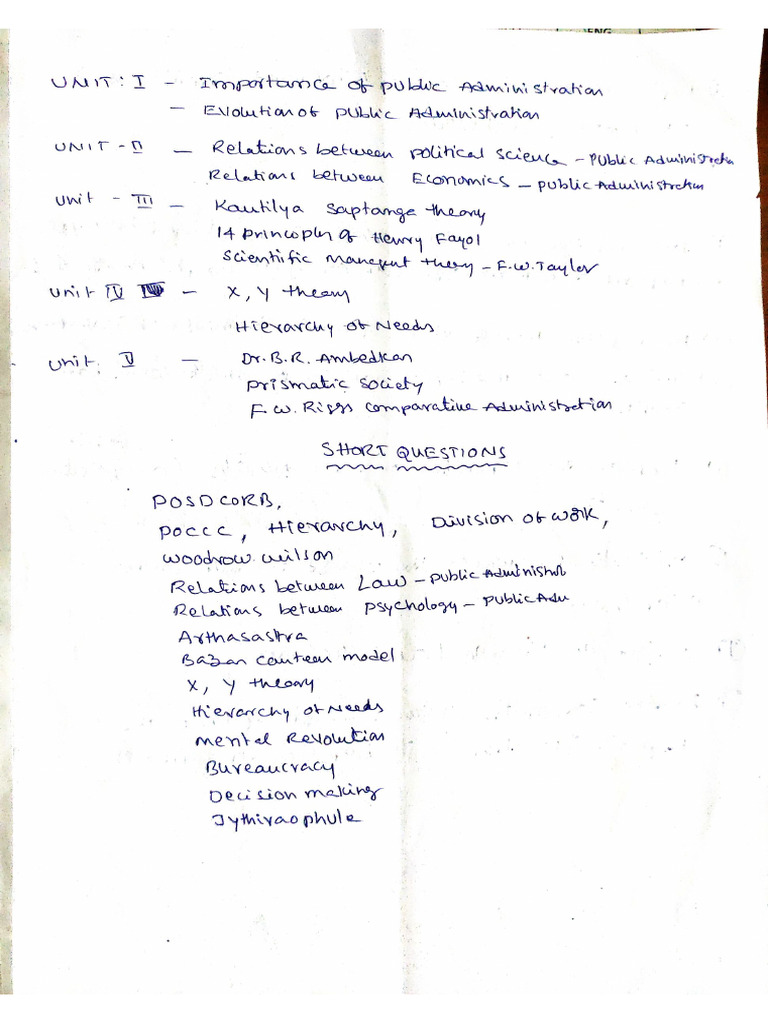 ENG
UNIT: I - Importance of public Administration
- Evolution of public Administration
UNIT - II - Relations between political science - public Administration
Relations between Economics - public Administration
Unit - III - Kautilya Saptanga theory
14 principles of Henry Fayol
Scientific Management theory - F.W. Taylor
Unit IV - X, Y theory
Hierarchy of Needs
Unit V - Dr. B.R. Ambedkar
prismatic society
F.W. Riggs comparative Administration
SHORT QUESTIONS
POSDCORB,
POCCC, Hierarchy, Division of work,
Woodrow wilson
Relations between Law - public Administ
Relations between psychology - public Adm
Arthasastra
Bazar canteen model
X, Y theory
Hierarchy of Needs
Mental Revolution
Bureaucracy
Decision making
Jythiraophule